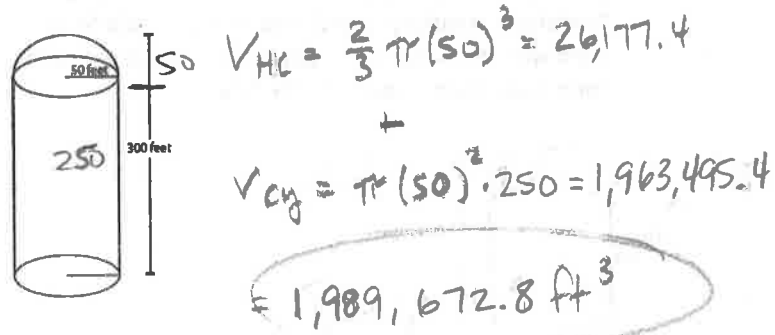 50 feet
50
300 feet
250
V_HC = 2/3 π(50)^3 = 26,177.4
+
V_Cy = π(50)^2 · 250 = 1,963,495.4
= 1,989,672.8 ft^3